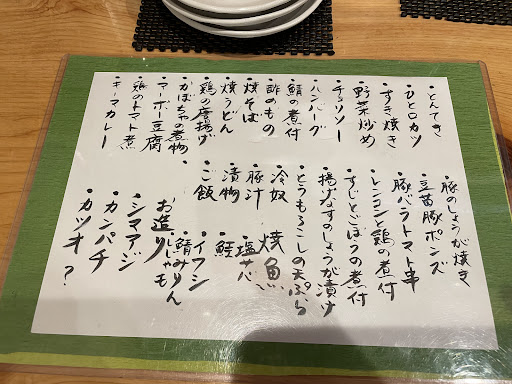 ・とんてき
・ひと口カツ
・すき焼き
・野菜炒め
・チョリソー
・ハンバーグ
・鯖の煮付
・酢のもの
・焼そば
・焼うどん
・鶏の唐揚げ
・かぼちゃの煮物
・マーボー豆腐
・鶏のトマト煮
・キーマカレー
・豚のしょうが焼き
・豆苗豚ポンズ
・豚バラトマト串
・レンコンと鶏の煮付
・すじとごぼうの煮付
・揚げなすのしょうが漬け
・とうもろこしの天ぷら
・冷奴
・豚汁
・漬物
・ご飯
焼魚
・塩サバ
・鮭
・イワシ
・鯖みりん
・ししゃも
お造り
・シマアジ
・カンパチ
・カツオ?